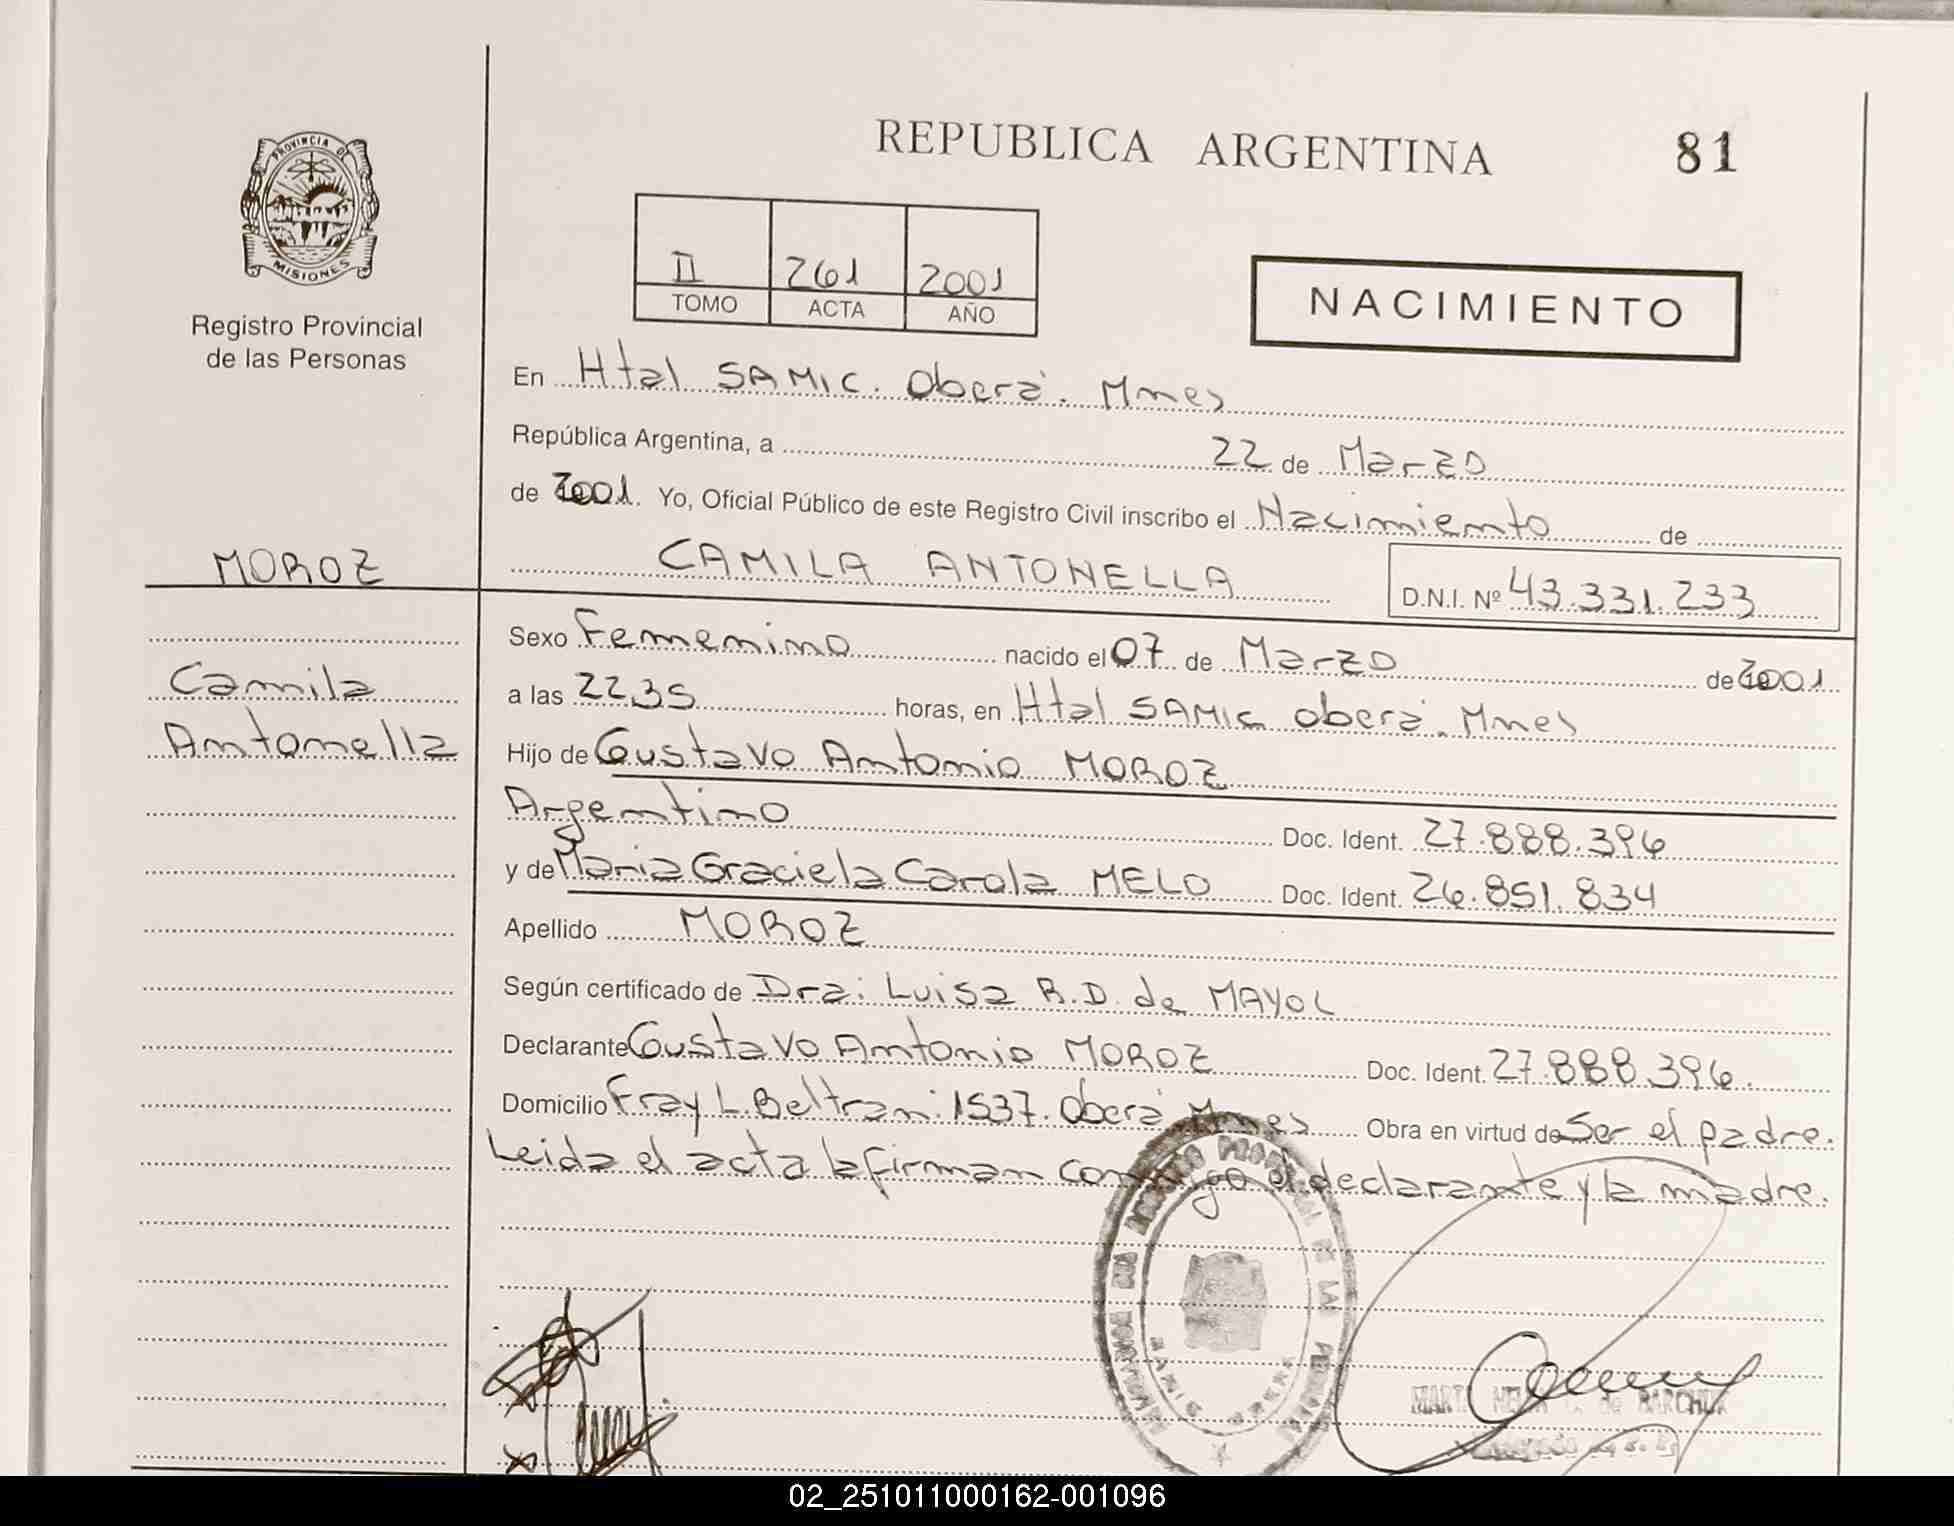 REPUBLICA ARGENTINA
81
PROVINCIA DE
MISIONES
Registro Provincial
de las Personas
II 261 2001
TOMO ACTA AÑO
NACIMIENTO
En Htal SAMIC. Oberá. Mnes
República Argentina, a 22 de Marzo
de 2001. Yo, Oficial Público de este Registro Civil inscribo el Nacimiento de
MOROZ
CAMILA ANTONELLA
D.N.I. Nº 43.331.233
Sexo Femenino nacido el 07 de Marzo de 2001
Camila
Antonella
a las 22,35 horas, en Htal SAMIC Oberá. Mnes
Hijo de Gustavo Antonio MOROZ
Argentino Doc. Ident. 27.888.396
y de Maria Graciela Carola MELO Doc. Ident. 26.851.834
Apellido MOROZ
Según certificado de Dra: Luisa R.D. de MAYOL
Declarante Gustavo Antonio MOROZ Doc. Ident. 27.888.396.
Domicilio Fray L. Beltran: 1537. Oberá Mnes Obra en virtud de Ser el padre.
Leida el acta la firman conmigo el declarante y la madre.
02_251011000162-001096